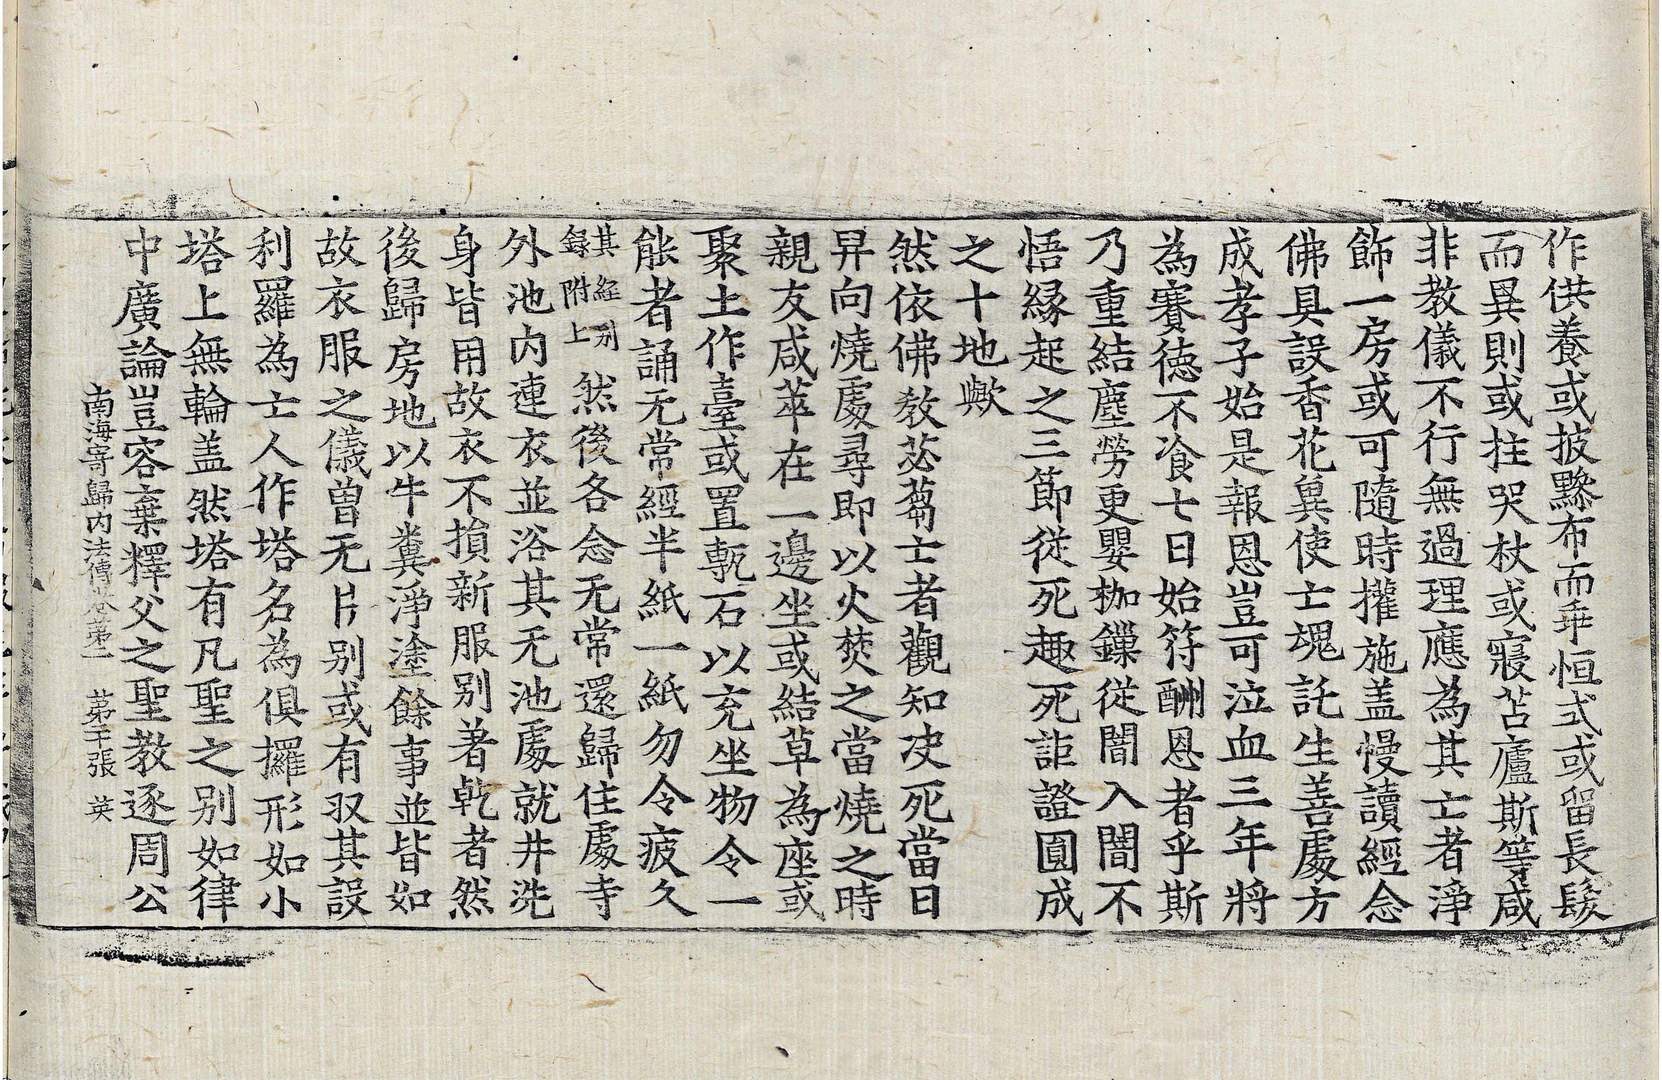 作供養或披黲布而乖恒式或留長髮
而異則或拄哭杖或寢苫廬斯等咸
非教儀不行無過理應為其亡者淨
飾一房或可隨時攉施盖幔讀經念
佛具設香花兾使亡魂託生善處方
成孝子始是報恩豈可泣血三年將
為賽德不飡七日始符酬恩者乎斯
乃重結塵勞更嬰枷鏁從闇入闇不
悟緣起之三節從死趣死詎證圓成
之十地歟
然依佛教苾蒭亡者觀知決死當日
舁向燒處尋即以火焚之當燒之時
親友咸萃在一邊坐或結草為座或
聚土作臺或置甎石以充坐物令一
能者誦无常經半紙一紙勿令疲久
其經別錄附上然後各念无常還歸住處寺
外池內連衣並浴其无池處就井洗
身皆用故衣不損新服別著乾者然
後歸房地以牛糞淨塗餘事並皆如
故衣服之儀曾无片別或有収其設
利羅為亡人作塔名為俱攞形如小
塔上無輪盖然塔有凡聖之別如律
中廣論豈容棄釋父之聖教逐周公
南海寄歸內法傳卷苐二 苐十張 英